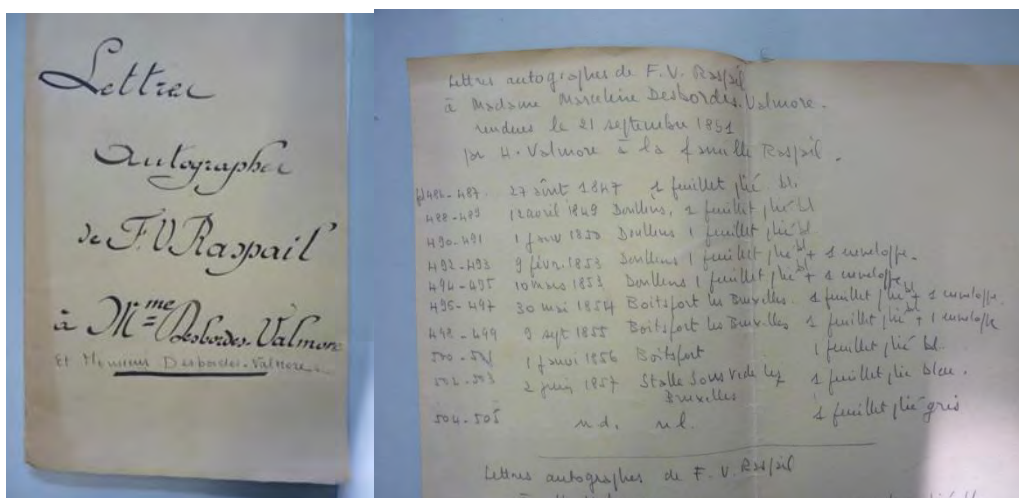 Lettres
Autographes
de F. V. Raspail
à Mme Desbordes-Valmore
Et Monsieur Desbordes-Valmore
Lettres autographes de F. V. Raspail
à Madame Marceline Desbordes-Valmore.
rendues le 21 septembre 1851
par H. Valmore à la famille Raspail.
487. 27 août 1847 1 feuillet plié bl.
488-489 12 avril 1849 Doullens, 1 feuillet plié bl
490-491 1 janv 1850 Doullens 1 feuillet plié bl
492-493 9 févr. 1853 Doullens 1 feuillet plié bl + 1 enveloppe.
494-495 10 mars 1853 Doullens 1 feuillet plié bl + 1 enveloppe
495-497 30 mai 1854 Boitsfort les Bruxelles. 1 feuillet plié bl + 1 enveloppe.
498-499 9 sept 1855 Boitsfort les Bruxelles 1 feuillet plié bl + 1 enveloppe
500-501 1 janvi 1856 Boitsfort 1 feuillet plié bl.
502-503 2 juin 1857 Stalle Sous Vide les 1 feuillet plié bleu.
Bruxelles
504-505 n.d. n.l. 1 feuillet plié gris
Lettres autographes de F. V. Raspail